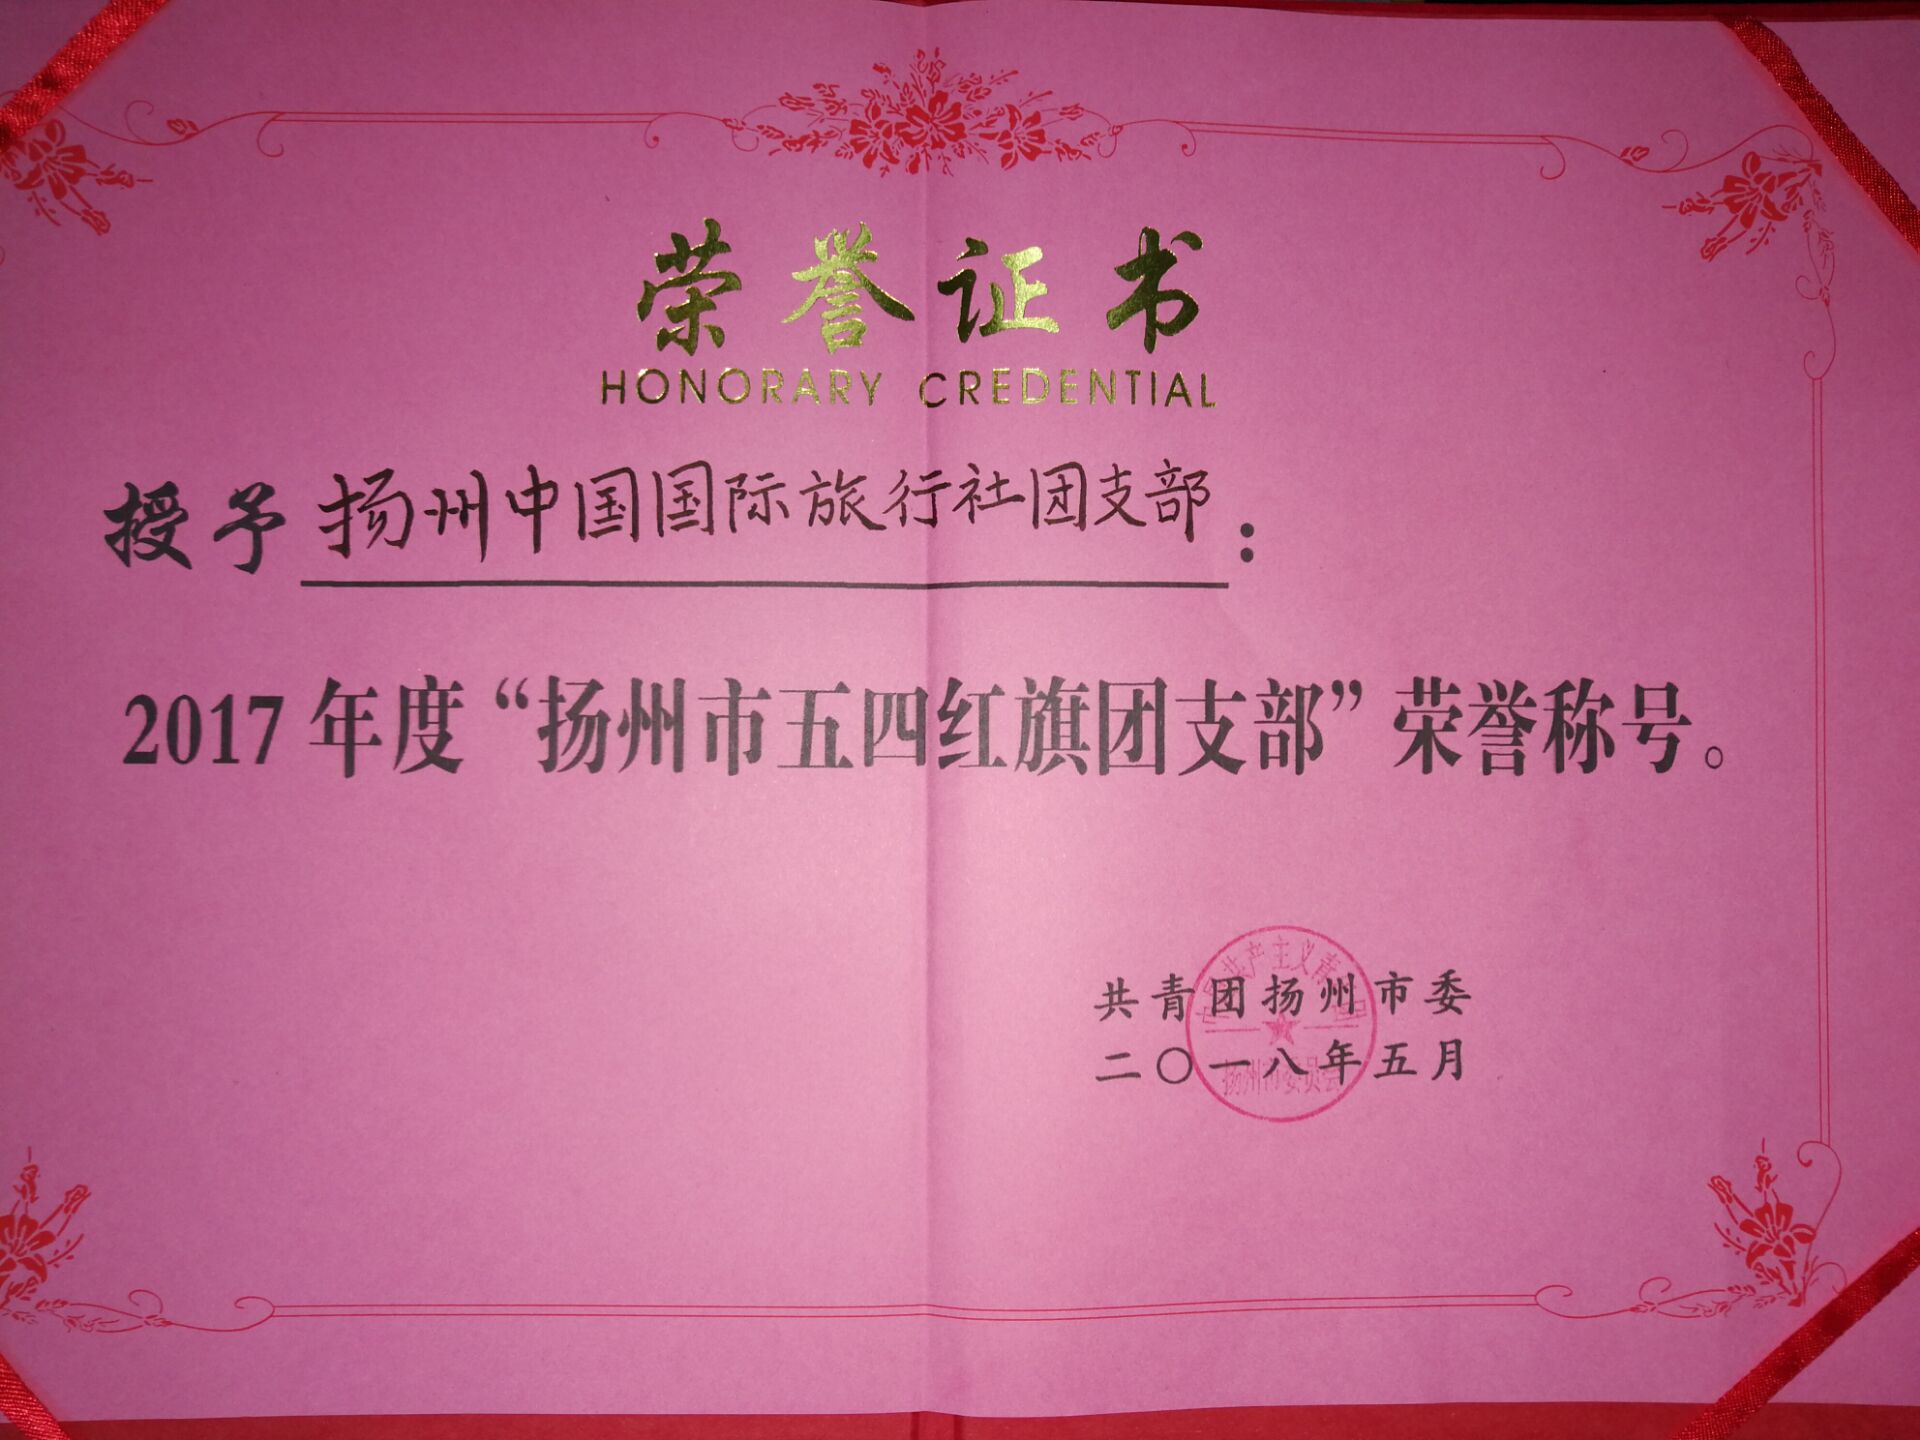 荣誉证书
HONORARY CREDENTIAL
授予 扬州中国国际旅行社团支部：
2017 年度“扬州市五四红旗团支部”荣誉称号。
共青团扬州市委
二〇一八年五月
共产主义青
扬州市委员会